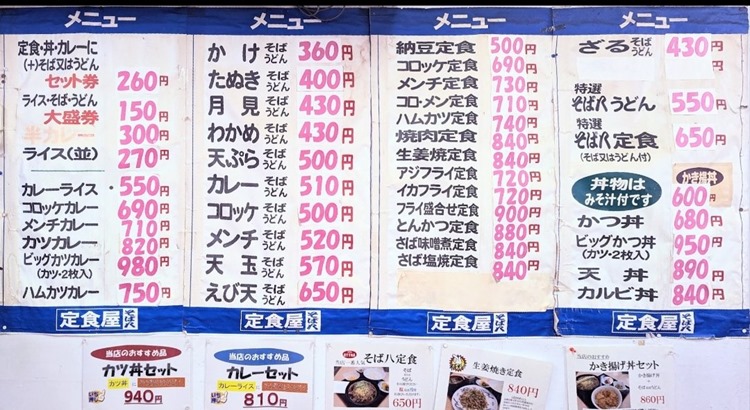 メニュー
定食・丼・カレーに
(+)そば又はうどん
セット券 260円
ライス・そば・うどん
大盛券 150円
半カレー 300円
ライス(並) 270円
カレーライス 550円
コロッケカレー 690円
メンチカレー 710円
カツカレー 820円
ビッグカツカレー 980円
(カツ・2枚入)
ハムカツカレー 750円
定食屋 そば八
メニュー
かけ そばうどん 360円
たぬき そばうどん 400円
月見 そばうどん 430円
わかめ そばうどん 430円
天ぷら そばうどん 500円
カレー そばうどん 510円
コロッケ そばうどん 500円
メンチ そばうどん 520円
天玉 そばうどん 570円
えび天 そばうどん 650円
定食屋 そば八
メニュー
納豆定食 500円
コロッケ定食 690円
メンチ定食 730円
コロ・メン定食 710円
ハムカツ定食 740円
焼肉定食 840円
生姜焼定食 840円
アジフライ定食 720円
イカフライ定食 720円
フライ盛合せ定食 900円
とんかつ定食 880円
さば味噌煮定食 840円
さば塩焼定食 840円
定食屋 そば八
メニュー
ざる そばうどん 430円
円
特選
そば八うどん 550円
特選
そば八定食 650円
(そば又はうどん付)
丼物は
みそ汁付です
かき揚丼
600円
かつ丼 680円
ビッグかつ丼 950円
(カツ・2枚入)
天丼 890円
カルビ丼 840円
定食屋 そば八
当店のおすすめ品
カツ丼セット
カツ丼
940円
当店のおすすめ品
カレーセット
カレーライス
810円
当店一番人気
そば八定食
650円
生姜焼き定食
840円
当店のおすすめ
かき揚げ丼セット
かき揚げ丼
860円